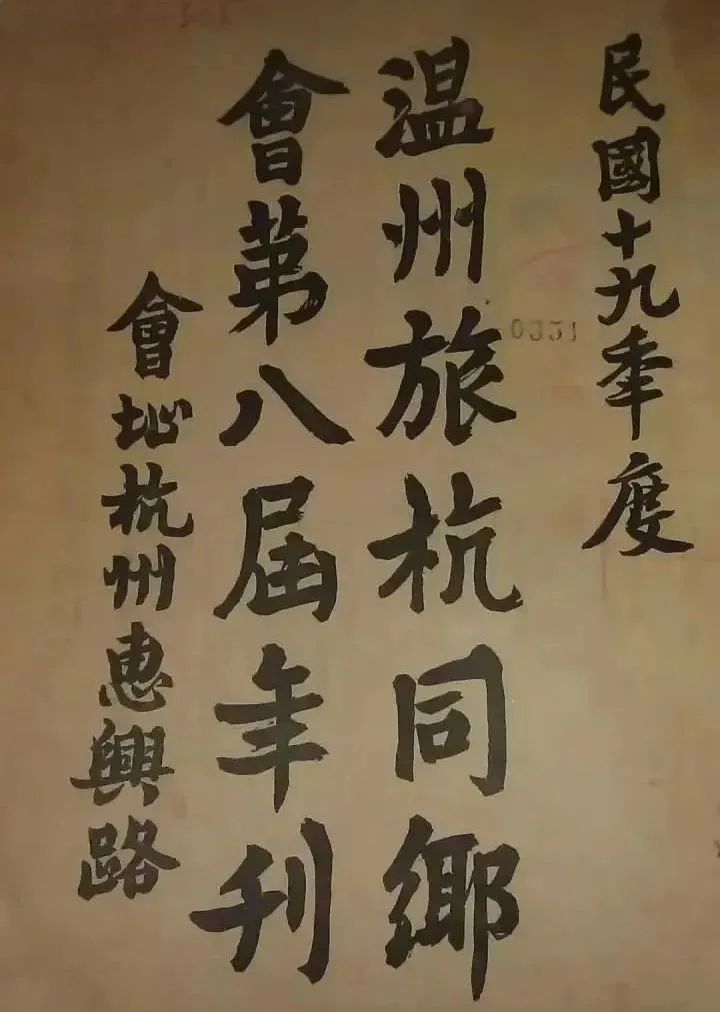 民國十九年度
温州旅杭同鄉
會第八屆年刊
會址杭州惠興路
0331